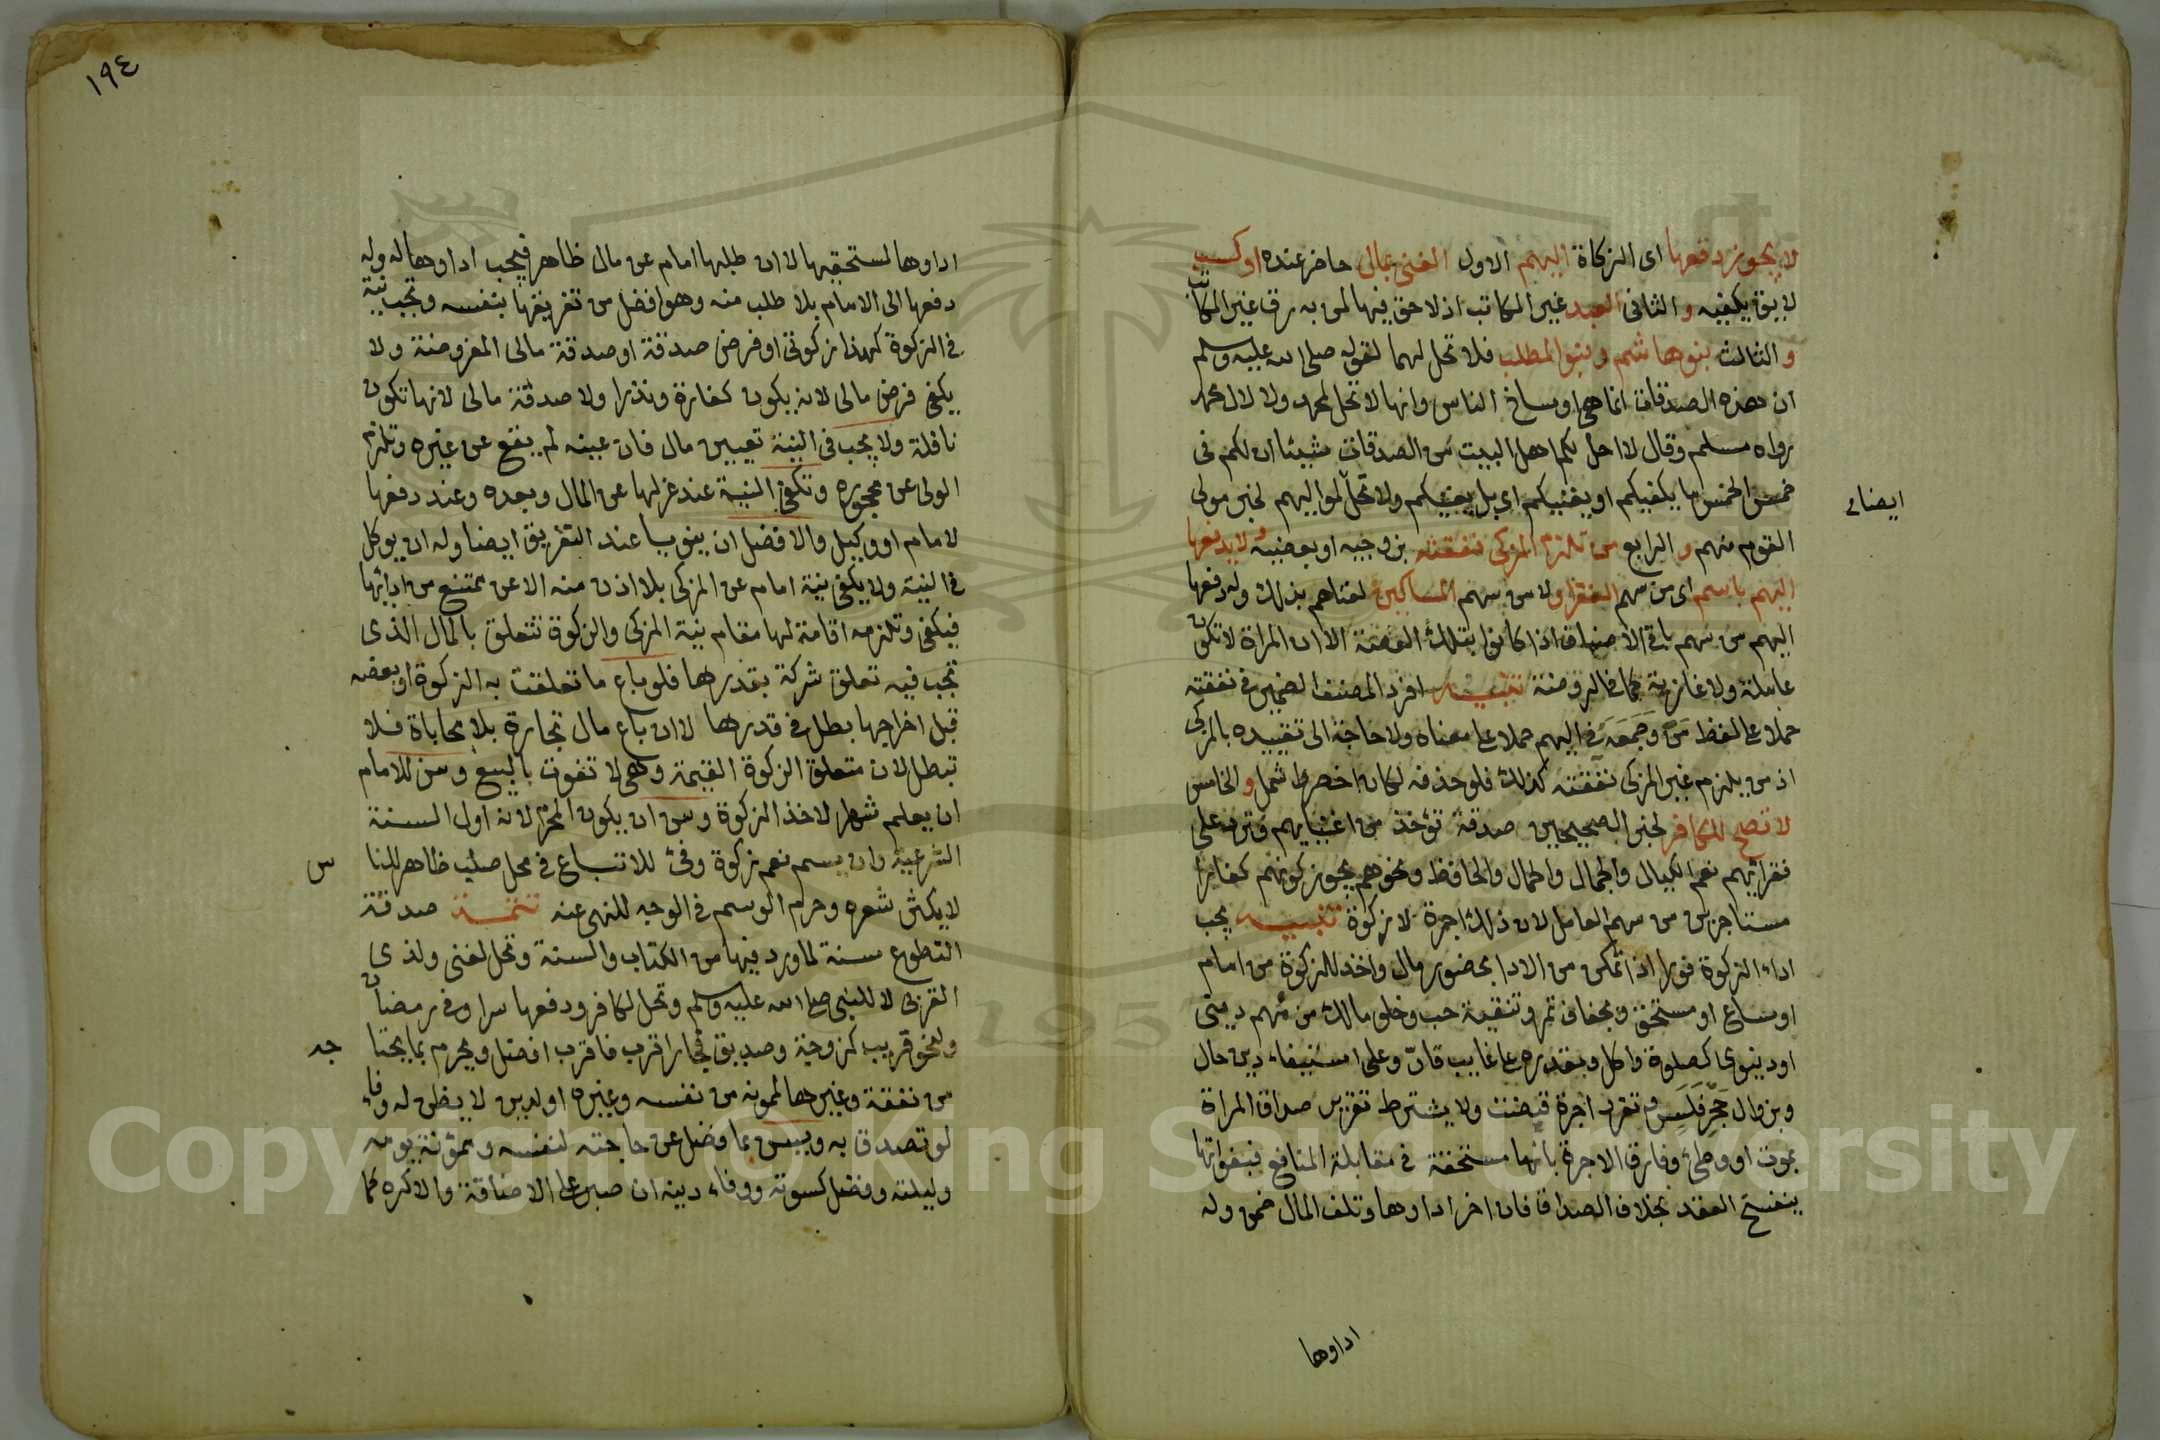 لا يجوز دفعها اى الزكاة اليهم الاول الغنى بمال حاضر عنده او كسب
لايق يكفيه والثانى العبد غير المكاتب اذ لا حق فيها لمن به رق غير المكاتب
والثالث بنوهاشم وبنو المطلب فلا تحل لهما لقوله صلى الله عليه وسلم
ان هذه الصدقات انما هى اوساخ الناس وانها لا تحل لمحمد ولا لال محمد
رواه مسلم وقال لا احل لكم اهل البيت من الصدقات شيئا ان لكم فى
خمس الخمس ما يكفيكم او يغنيكم اى بل يغنيكم ولا تحل لمواليهم لخبر مولى
ايضا
القوم منهم والرابع من تلزم المزكى نفقته بزوجيه او بعضيه ولا يدفعها
اليهم باسم اى من سهم الفقرا ولا من سهم المساكين لغناهم بذلك وله دفعها
اليهم من سهم باقى الاصناف اذا كانوا بتلك الصفة الا ان المراة لا تكون
عاملة ولا غازية كما فى الروضة تنبيه افرد المصنف الضمير فى نفقته
حملا على لفظ من وجمعه فى اليهم حملا على معناه ولا حاجة الى تقييده بالمزكى
اذ من يلزم غير المزكى نفقته كذلك فلو حذفه لكان اخصر واشمل والخامس
لا تصح للكافر لخبر الصحيحين صدقة تؤخذ من اغنيايهم فترد على
فقرائهم نعم الكيال والجمال والحمال والحافظ ونحوهم يجوز كونهم كفارا
مستاجرين من سهم العامل لان ذلك اجرة لا زكوة تنبيه يجب
اداء الزكوة فورا اذا تمكن من الادا بحضور مال واخذ للزكوة من امام
او ساع او مستحق وبجفاف ثمر وتنقية حب وخلو مالك من مهم دينى
او دنيوى كصلوة واكل وبقدرة على غايب قارّ وعلى استيفاء دين حال
وبزوال حَجْرِ فَلَسٍ وتقرر اجرة قبضت ولا يشترط تقرير صداق المراة
بموت او وطئ وفارق الاجرة بانها مستحقة فى مقابلة المنافع فبفواتها
ينفسخ العقد بخلاف الصداق فان اخر اداوها وتلف المال ضمن وله
اداوها
١٩٤
اداوها لمستحقيها لا ان طلبها امام عن مال ظاهر فيجب اداوها له وله
دفعها الى الامام بلا طلب منه وهو افضل من تفريقها بنفسه وتجب نية
فى الزكوة كهذا زكوتى او فرض صدقة او صدقة مالى المفروضة ولا
يكفى فرض مالى لانه يكون كفارة ونذرا ولا صدقة مالى لانها تكون
نافلة ولا يجب فى النية تعيين مال فان عينه لم يقع عن غيره وتلزم
الولى عن محجوره وتكفى النية عند عزلها عن المال وبعده وعند دفعها
لامام او وكيل والافضل ان ينويا عند التفريق ايضا وله ان يوكل
فى النية ولا يكفى نية امام عن المزكى بلا اذن منه الا عن ممتنع من ادائها
فيكفى وتلزمه اقامة لها مقام نية المزكى والزكوة تتعلق بالمال الذى
تجب فيه تعلق شركة بقدرها فلو باع ما تعلقت به الزكوة او بعضه
قبل اخراجها بطل فى قدرها لا ان باع مال تجارة بلا محاباة فلا
تبطل لان متعلق الزكوة القيمة وهى لا تفوت بالبيع وسن للامام
ان يعلم شهرا لاخذ الزكوة وسن ان يكون المحرم لانه اول السنة
الشرعية وان يسم نعم زكوة وفئ للاتباع فى محل صلب ظاهر للنا
س
لا يكثر شعره وحرم الوسم فى الوجه للنهى عنه تتمة صدقة
التطوع سنة لما ورد فيها من الكتاب والسنة وتحل لغنى ولذى
القربى لا للنبى صلى الله عليه وسلم وتحل لكافر ودفعها سرا وفى رمضان
ولنحو قريب كزوجة وصديق فجار اقرب فاقرب افضل ويحرم بما يحتا
جه
من نفقة وغيرها لمونه من نفسه وغيره او لدين لا يظن له وفاء
لو تصدق به ويسن بما فضل عن حاجته لنفسه وممؤنه يومه
وليلته وفصل كسوته ووفاء دينه ان صبر على الاضاقة والا كره كما